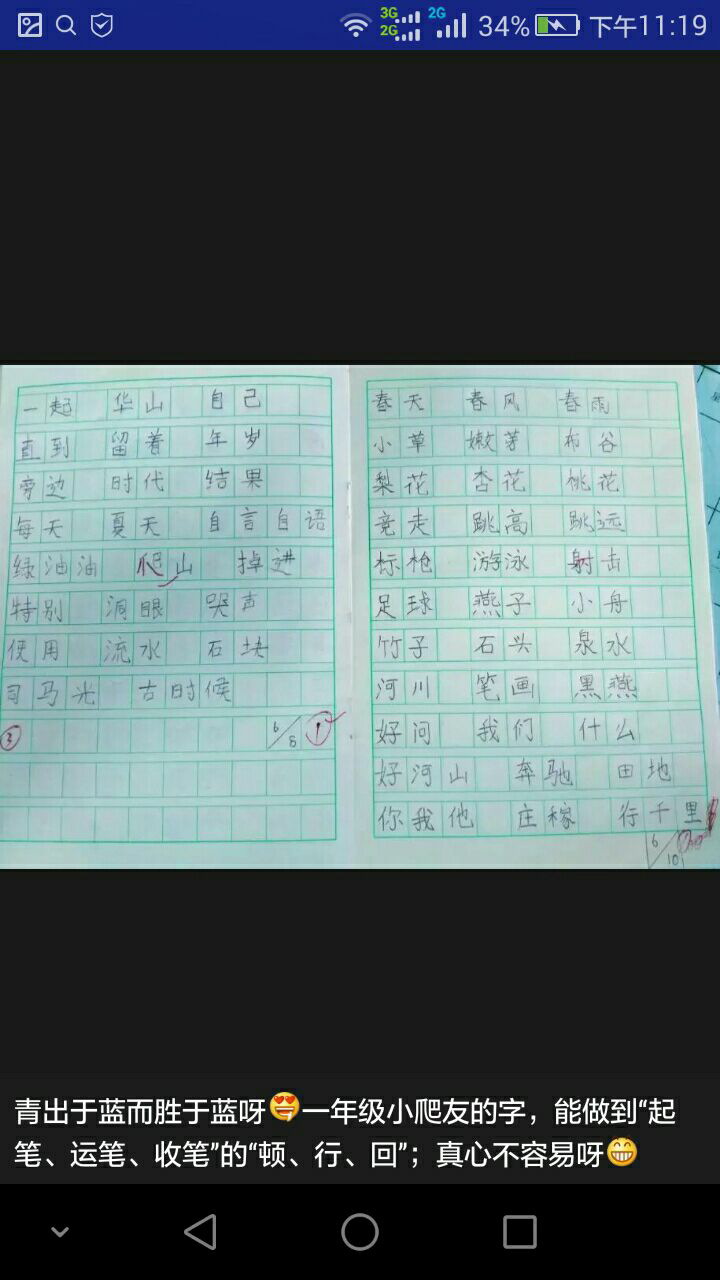 3G
2G
2G
34%
下午11:19
一起 华山 自己
直到 留着 年岁
旁边 时代 结果
每天 夏天 自言自语
绿油油 爬山 掉进
特别 洞眼 哭声
使用 流水 石块
司马光 古时候
3
6/5
1
春天 春风 春雨
小草 嫩芽 布谷
梨花 杏花 桃花
竞走 跳高 跳远
标枪 游泳 射击
足球 燕子 小舟
竹子 石头 泉水
河川 笔画 黑燕
好问 我们 什么
好河山 奔驰 田地
你我他 庄稼 行千里
6/10
青出于蓝而胜于蓝呀😍一年级小爬友的字，能做到“起
笔、运笔、收笔”的“顿、行、回”；真心不容易呀😁